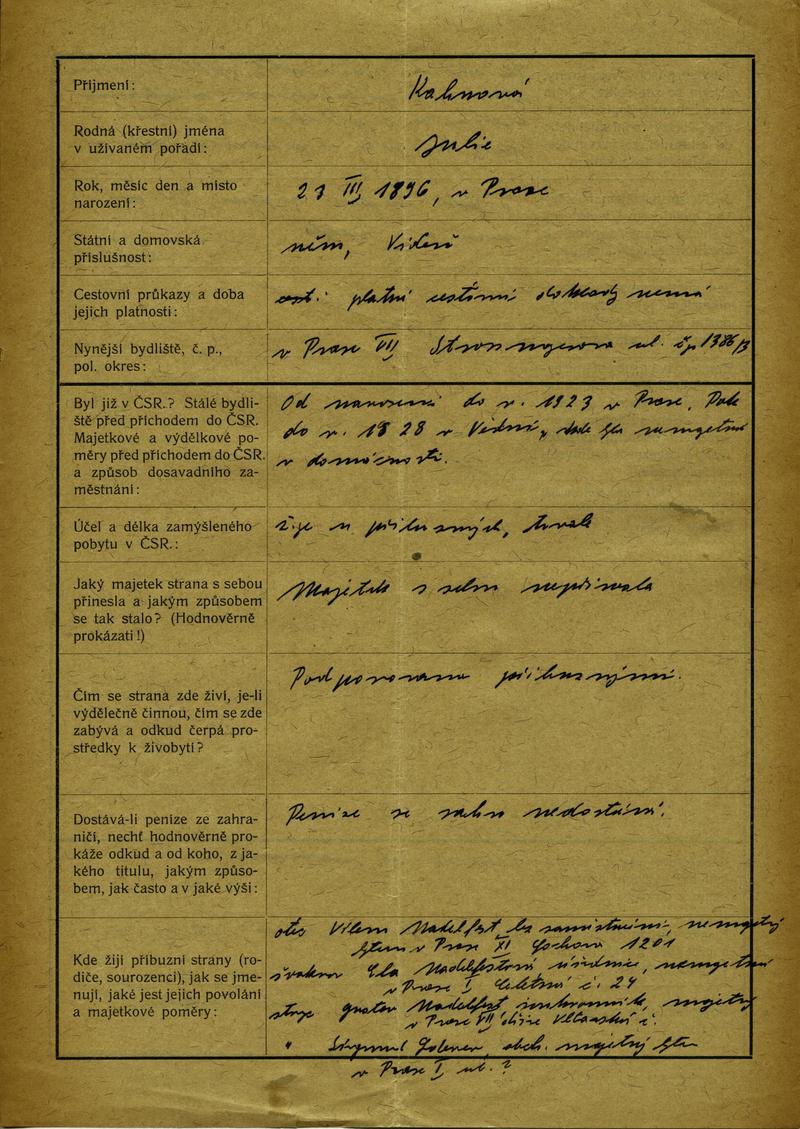 Příjmení:
Kahnová
Rodná (křestní) jména
v užívaném pořadí:
Julie
Rok, měsíc den a místo
narození:
21 III 1896, v Praze
Státní a domovská
příslušnost:
něm, Vídeň
Cestovní průkazy a doba
jejich platnosti:
platné cestovní doklady nemá
Nynější bydliště, č. p.,
pol. okres:
v Praze VII Strossmayerova čp. 1386/3
Byl již v ČSR.? Stálé bydli-
ště před příchodem do ČSR.
Majetkové a výdělkové po-
měry před příchodem do ČSR.
a způsob dosavadního za-
městnání:
Od narození do r. 1923 v Praze, Pak
do r. 1828 v Vídni,
v domácnosti.
Účel a délka zamýšleného
pobytu v ČSR.:
žije u příbuzných, trvale
Jaký majetek strana s sebou
přinesla a jakým způsobem
se tak stalo? (Hodnověrně
prokázati!)
Majetek s sebou nepřivezla
Čím se strana zde živí, je-li
výdělečně činnou, čím se zde
zabývá a odkud čerpá pro-
středky k živobytí?
Podporována příbuznými.
Dostává-li peníze ze zahra-
ničí, nechť hodnověrně pro-
káže odkud a od koho, z ja-
kého titulu, jakým způso-
bem, jak často a v jaké výši:
Peníze ze nedostává.
Kde žijí příbuzní strany (ro-
diče, sourozenci), jak se jme-
nují, jaké jest jejich povolání
a majetkové poměry:
otec Vilém bez zaměstnání, nemajetný
v Praze XI 1201
v Praze I Celetná č. 24
Gustav majetný
v Praze VII
" obch. majetný
v Praze I ul. ?